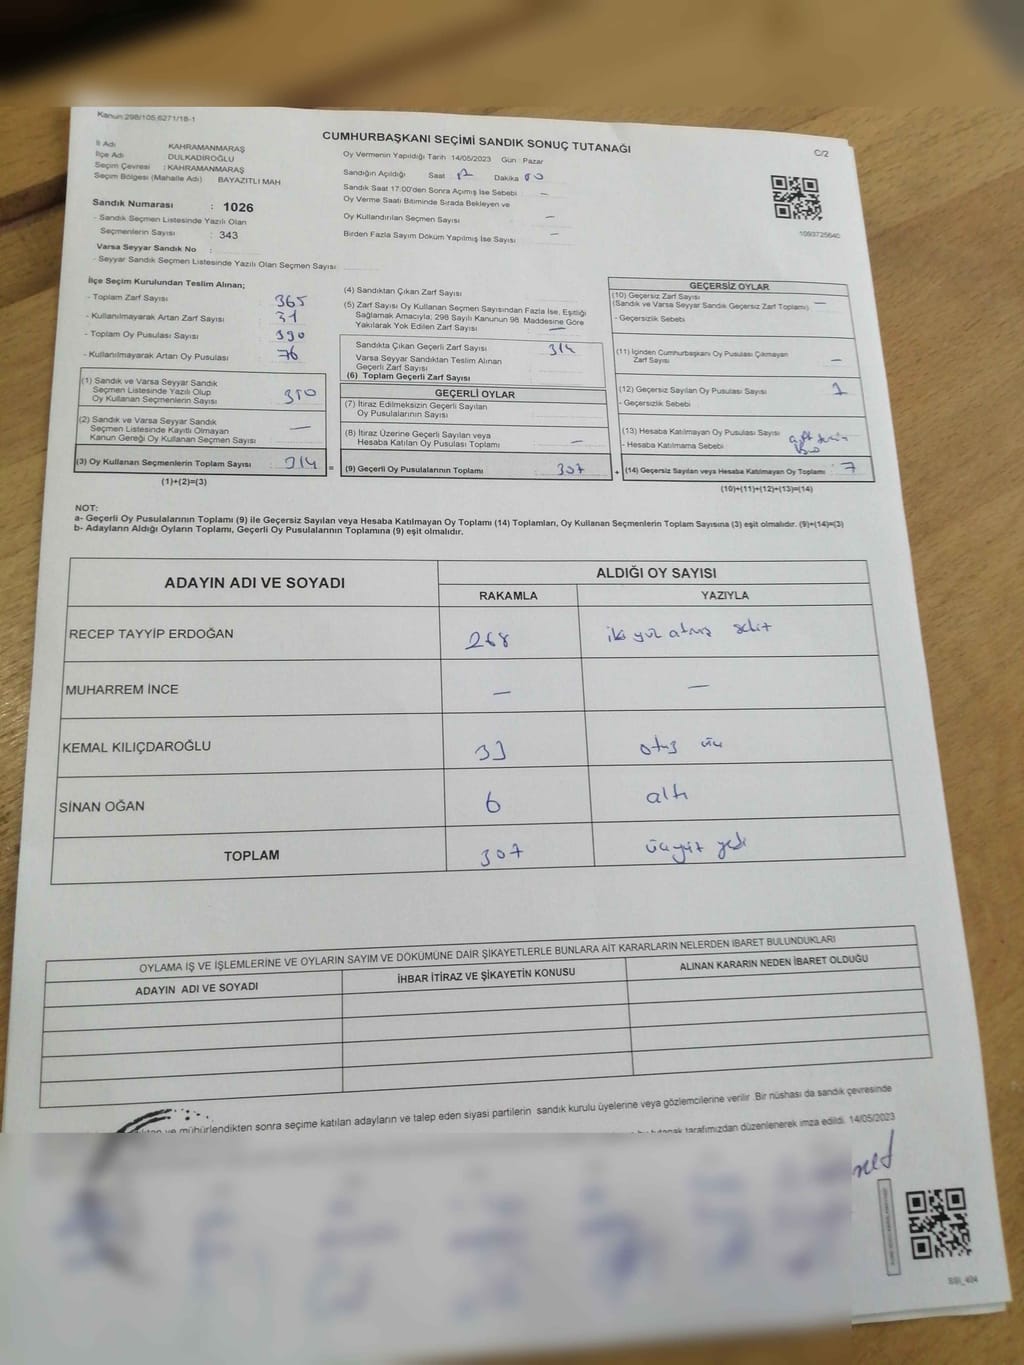 Kanun:298/105,6271/18-1
CUMHURBAŞKANI SEÇİMİ SANDIK SONUÇ TUTANAĞI
C/2
İl Adı KAHRAMANMARAŞ
İlçe Adı DULKADİROĞLU
Seçim Çevresi : KAHRAMANMARAŞ
Seçim Bölgesi (Mahalle Adı) BAYAZITLI MAH
Sandık Numarası : 1026
- Sandık Seçmen Listesinde Yazılı Olan
Seçmenlerin Sayısı : 343
Varsa Seyyar Sandık No :
- Seyyar Sandık Seçmen Listesinde Yazılı Olan Seçmen Sayısı
Oy Vermenin Yapıldığı Tarih 14/05/2023 Gün : Pazar
Sandığın Açıldığı Saat 17 Dakika 00
Sandık Saat 17:00'den Sonra Açımış İse Sebebi : —
Oy Verme Saati Bitiminde Sırada Bekleyen ve
Oy Kullandırılan Seçmen Sayısı —
Birden Fazla Sayım Döküm Yapılmış İse Sayısı —
1093725640
İlçe Seçim Kurulundan Teslim Alınan;
- Toplam Zarf Sayısı 365
- Kullanılmayarak Artan Zarf Sayısı 31
- Toplam Oy Pusulası Sayısı 390
- Kullanılmayarak Artan Oy Pusulası 76
(1) Sandık ve Varsa Seyyar Sandık
Seçmen Listesinde Yazılı Olup
Oy Kullanan Seçmenlerin Sayısı
(2) Sandık ve Varsa Seyyar Sandık
Seçmen Listesinde Kayıtlı Olmayan
Kanun Gereği Oy Kullanan Seçmen Sayısı —
(3) Oy Kullanan Seçmenlerin Toplam Sayısı 314
(1)+(2)=(3)
(4) Sandıktan Çıkan Zarf Sayısı
(5) Zarf Sayısı Oy Kullanan Seçmen Sayısından Fazla İse, Eşitliği
Sağlamak Amacıyla; 298 Sayılı Kanunun 98. Maddesine Göre
Yakılarak Yok Edilen Zarf Sayısı —
Sandıkta Çıkan Geçerli Zarf Sayısı 314
Varsa Seyyar Sandıktan Teslim Alınan
Geçerli Zarf Sayısı
(6) Toplam Geçerli Zarf Sayısı
GEÇERLİ OYLAR
(7) İtiraz Edilmeksizin Geçerli Sayılan
Oy Pusulalarının Sayısı
(8) İtiraz Üzerine Geçerli Sayılan veya
Hesaba Katılan Oy Pusulası Toplamı —
= (9) Geçerli Oy Pusulalarının Toplamı 307
GEÇERSİZ OYLAR
(10) Geçersiz Zarf Sayısı
(Sandık ve Varsa Seyyar Sandık Geçersiz Zarf Toplamı) —
- Geçersizlik Sebebi
(11) İçinden Cumhurbaşkanı Oy Pusulası Çıkmayan
Zarf Sayısı —
(12) Geçersiz Sayılan Oy Pusulası Sayısı
- Geçersizlik Sebebi
(13) Hesaba Katılmayan Oy Pusulası Sayısı
- Hesaba Katılmama Sebebi
+ (14) Geçersiz Sayılan veya Hesaba Katılmayan Oy Toplamı : 7
(10)+(11)+(12)+(13)=(14)
NOT:
a- Geçerli Oy Pusulalarının Toplamı (9) ile Geçersiz Sayılan veya Hesaba Katılmayan Oy Toplamı (14) Toplamları, Oy Kullanan Seçmenlerin Toplam Sayısına (3) eşit olmalıdır. (9)+(14)=(3)
b- Adayların Aldığı Oyların Toplamı, Geçerli Oy Pusulalarının Toplamına (9) eşit olmalıdır.
ADAYIN ADI VE SOYADI
ALDIĞI OY SAYISI
RAKAMLA YAZIYLA
RECEP TAYYİP ERDOĞAN 268 iki yüz atmış sekiz
MUHARREM İNCE — —
KEMAL KILIÇDAROĞLU 33 otuz üç
SİNAN OĞAN 6 altı
TOPLAM 307 üçyüz yedi
OYLAMA İŞ VE İŞLEMLERİNE VE OYLARIN SAYIM VE DÖKÜMÜNE DAİR ŞİKAYETLERLE BUNLARA AİT KARARLARIN NELERDEN İBARET BULUNDUKLARI
ADAYIN ADI VE SOYADI İHBAR İTİRAZ VE ŞİKAYETİN KONUSU ALINAN KARARIN NEDEN İBARET OLDUĞU
ve mühürlendikten sonra seçime katılan adayların ve talep eden siyasi partilerin sandık kurulu üyelerine veya gözlemcilerine verilir. Bir nüshası da sandık çevresinde
bu tutanak tarafımızdan düzenlenerek imza edildi. 14/05/2023